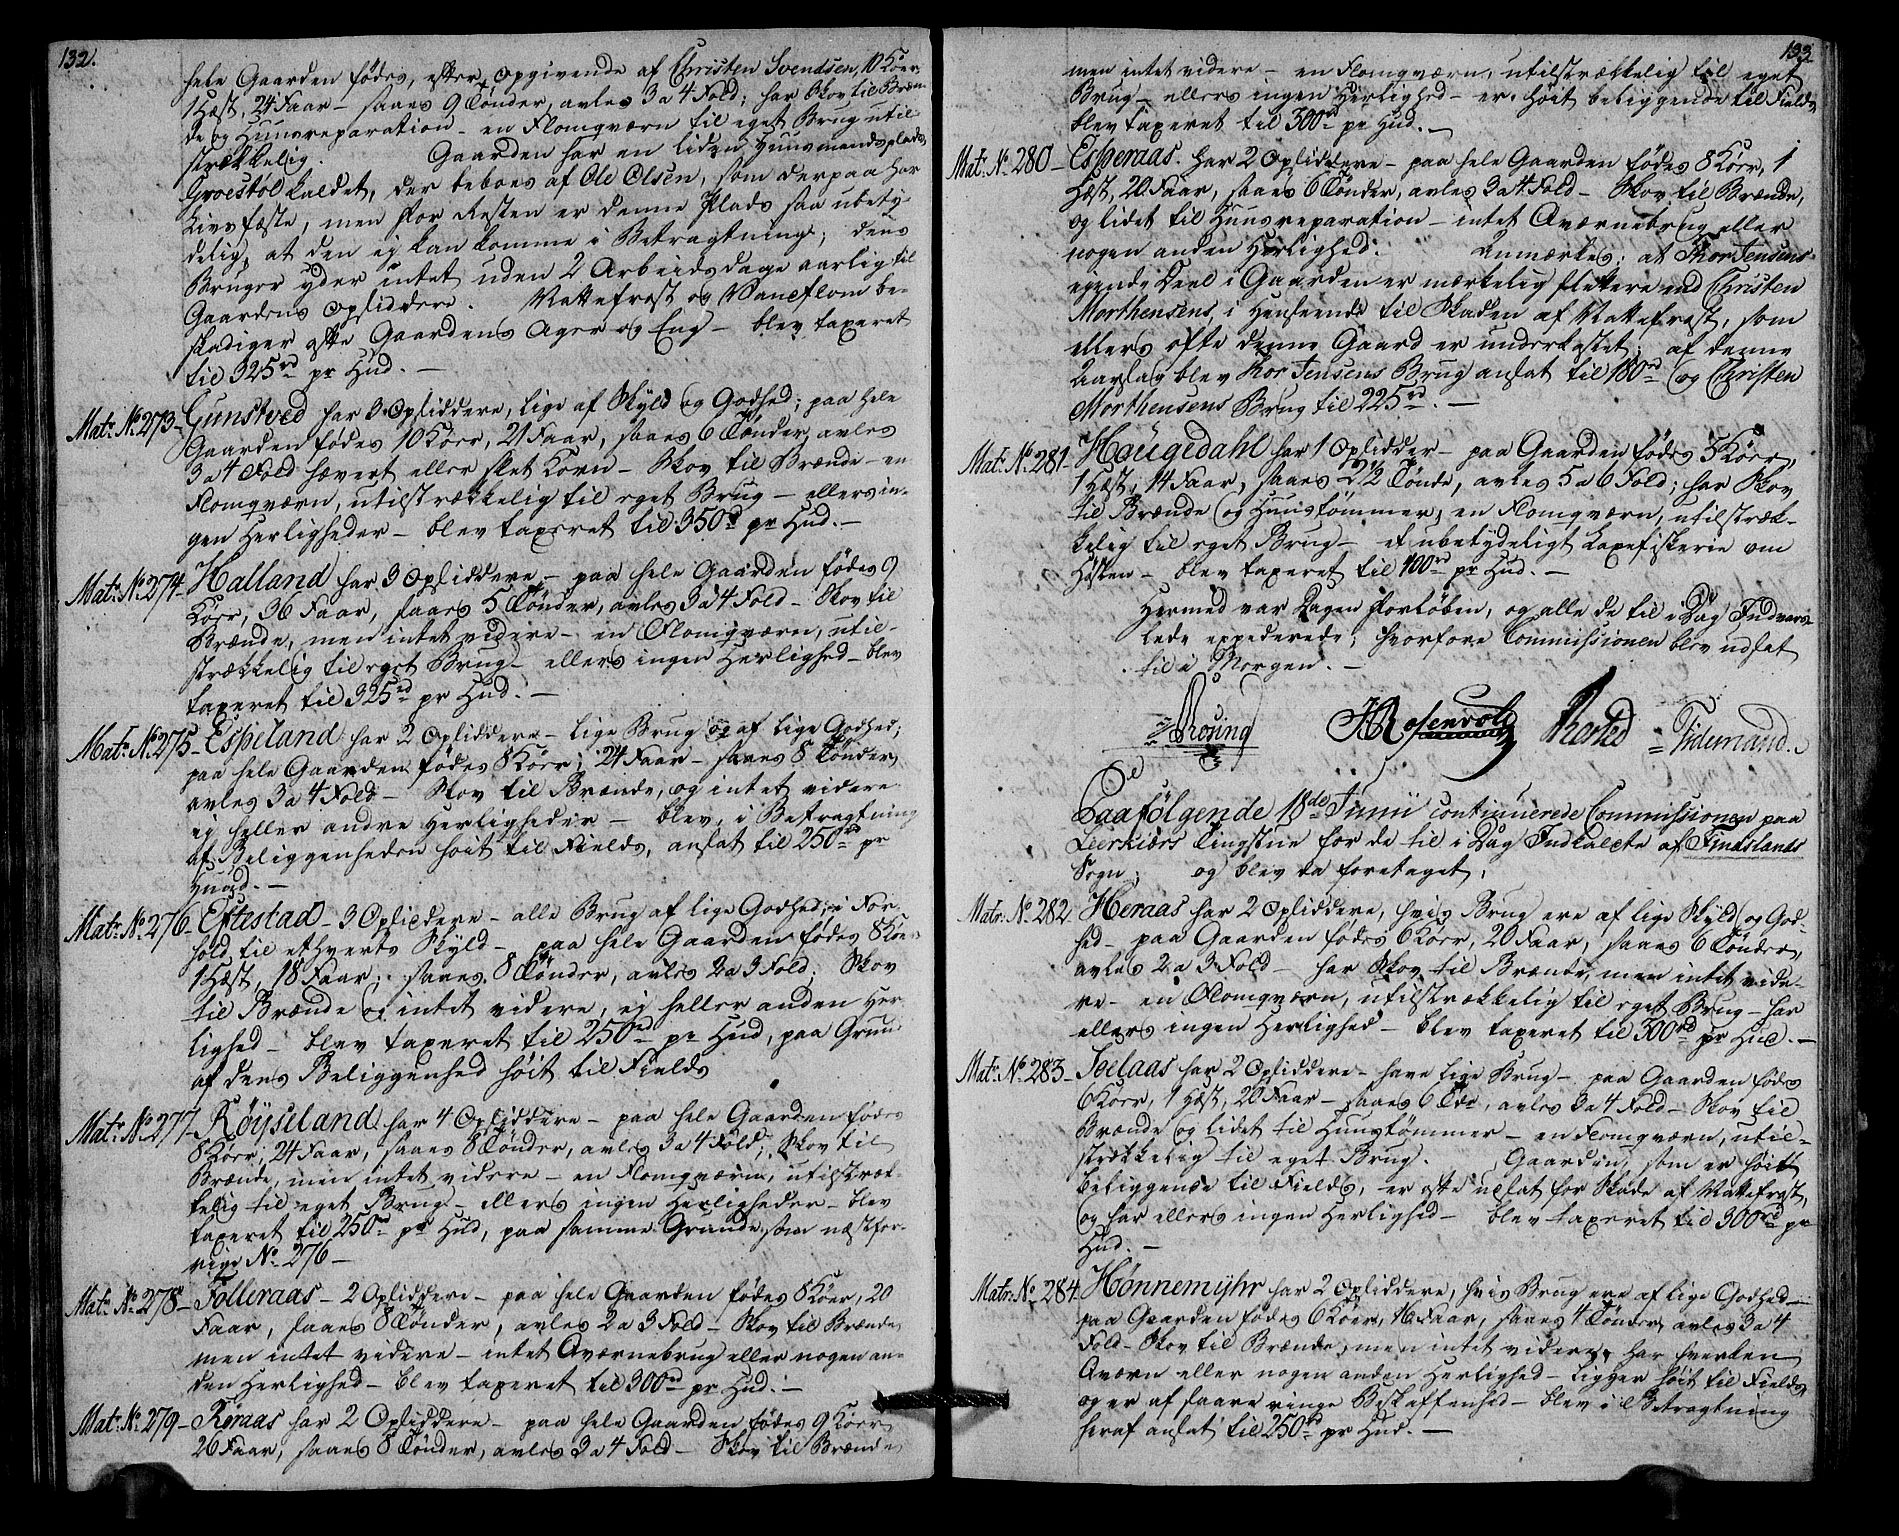 132.
hele Gaarden fødes, efter Opgivende af Christen Svendsen, 10 Köer
1 Hæst, 24 Faar – saaes 9 Tönder, avles 3 a 4 Fold; har Skov til Bræn-
de og Huusreparation – en Flomqværn til eget Brug util
strækkelig. Gaarden har en liden Huusmandsplads
Groestøl kaldet, der beboes af Ole Olsen, som derpaa har
Livsfæste, men for Resten er denne Plads saa ubety-
delig, at den ej kan komme i Betragtning; dens
Bruger yder intet uden 2 Arbeidsdage aarlig til
Gaardens Opsiddere. Nattefrost og Vandflom be-
skadiger ofte Gaardens Ager og Eng – blev taxeret
til 325rd pr Hud. –
Matr. No. 273 – Gunstved har 3 Opsiddere, lige af Skyld og Godhed; paa hele
Gaarden fødes 10 Köer, 21 Faar, saaes 6 Tönder, avles
3 a 4 Fold hævert eller slet Korn – Skov til Brænde – en
Flomqværn, utilstrækkelig til eget Brug – ellers in-
gen Herligheder – blev taxeret til 350rd pr Hud. –
Matr. No. 274 – Halland har 3 Opsiddere – paa hele Gaarden fødes 9
Köer, 36 Faar, saaes 5 Tönder, avles 3 a 4 Fold – Skov til
Brænde, men intet videre – en Flomqværn, util-
strækkelig til eget Brug – ellers ingen Herlighed – blev
taxeret til 325rd pr Hud. –
Matr. No. 275 – Espeland har 2 Opsiddere – lige Brug og af lige Godhed;
paa hele Gaarden fødes 8 Köer, 24 Faar – saaes 8 Tönder,
avles 3 a 4 Fold – Skov til Brænde, og intet videre
ej heller andre Herligheder – blev, i Betragtning
af Beliggenheden höit til Fields, ansat til 250rd pr
Huud. –
Matr. No. 276 – Eftestad – 3 Opsiddere – alle Brug af lige Godhed, i For-
hold til ethverts Skyld – paa hele Gaarden fødes 8 Köer
1 Hæst, 18 Faar; saaes 8 Tönder, avles 2 a 3 Fold; Skov
til Brænde og intet videre, ej heller anden Her-
lighed – blev taxeret til 250rd pr Hud, paa Grund
af dens Beliggenhed höit til Fields
Matr. No. 277 – Röyseland har 4 Opsiddere – paa hele Gaarden fødes
8 Köer, 24 Faar, saaes 8 Tönder, avles 3 a 4 Fold; Skov til
Brænde, men intet videre – en Flomqværn, utilstræk-
kelig til eget Brug – ellers ingen Herligheder – blev
taxeret til 250rd pr Hud, paa samme Grunde, som næstfor-
rige No. 276 –
Matr. No. 278 – Folleraas – 2 Opsiddere – paa hele Gaarden fødes 8 Köer, 20
Faar, saaes 8 Tönder, avles 2 a 3 Fold – Skov til Brænde,
men intet videre – intet Qværnebrug eller nogen an-
den Herlighed – blev taxeret til 300rd pr Hud. –
Matr. No. 279 – Røraas har 2 Opsiddere – paa hele Gaarden fødes 9 Köer
26 Faar, saaes 8 Tönder, avles 3 a 4 Fold – Skov til Brænde
133
men intet videre – en Flomqværn, utilstrækkelig til eget
Brug – ellers ingen Herlighed – er höit beliggende til Fields
blev taxeret til 300rd pr Hud. –
Matr. No. 280 – Esperaas. har 2 Opsiddere – paa hele Gaarden fødes 8 Köer, 1
Hæst, 20 Faar, saaes 6 Tönder, avles 3 a 4 Fold – Skov til Brænde,
og lidet til Huusreparation – intet Qværnebrug eller
nogen anden Herlighed. Anmærkes; at Thor Jensens
egende Deel i Gaarden er mærkelig slettere end Christen
Morthensens, i Henseende til Skaden af Nattefrost, som
ellers ofte denne Gaard er underkastet; af denne
Aarsag blev Thor Jensens Brug ansat til 180rd og Christen
Morthensens Brug til 225rd. –
Matr. No. 281 – Haugedahl har 1 Opsidder – paa Gaarden fødes 5 Köer,
1 Hæst, 14 Faar, saaes 2½ Tönde, avles 5 a 6 Fold; har Skov
til Brænde og Huustömmer, en Flomqværn, utilstræk-
kelig til eget Brug – et ubetydeligt Laxefiskerie om
Hösten – blev taxeret til 400rd pr Hud. –
Hermed var Dagen forlöben, og alle de til i Dag Indvars-
lede expederede; hvorfore Commissionen blev udsat
til i Morgen. –
Rosing Rosenvold Tidemand.
Paafölgende 18de Junii continuerede Commissionen paa
Leerkiærs Tingstue for de til i Dag Indkaldte af Findslands
Sogn; og blev da foretaget,
Matr. No. 282 Heraas har 2 Opsiddere, hvis Brug ere af lige Skyld og God-
hed – paa Gaarden fødes 6 Köer, 20 Faar, saaes 6 Tönder,
avles 2 a 3 Fold – har Skov til Brænde, men intet vide-
re – en Flomqværn, utilstrækkelig til eget Brug – har
ellers ingen Herlighed – blev taxeret til 300rd pr Hud. –
Matr. No. 283 – Soelaas har 2 Opsiddere – have lige Brug – paa Gaarden fødes
6 Köer, 1 Hæst, 20 Faar – saaes 6 Tdr, avles 3 a 4 Fold – Skov til
Brænde og lidet til Huustömmer – en Flomqværn, util-
strækkelig til eget Brug. Gaarden, som er höit
beliggende til Fields, er ofte udsat for Skade af Nattefrost,
og har ellers ingen Herlighed – blev taxeret til 300rd pr
Hud. –
Matr. No. 284 Hønnemyhr har 2 Opsiddere, hvis Brug ere af lige Godhed –
paa Gaarden fødes 6 Köer, 16 Faar, saaes 4 Tönder, avles 3 a 4
Fold – Skov til Brænde, men intet videre, har hverken
Qværn eller nogen anden Herlighed – ligger höit til Fields
og er af saare ringe Beskaffenhed – blev i Betragtning
heraf ansat til 250rd pr Hud. –